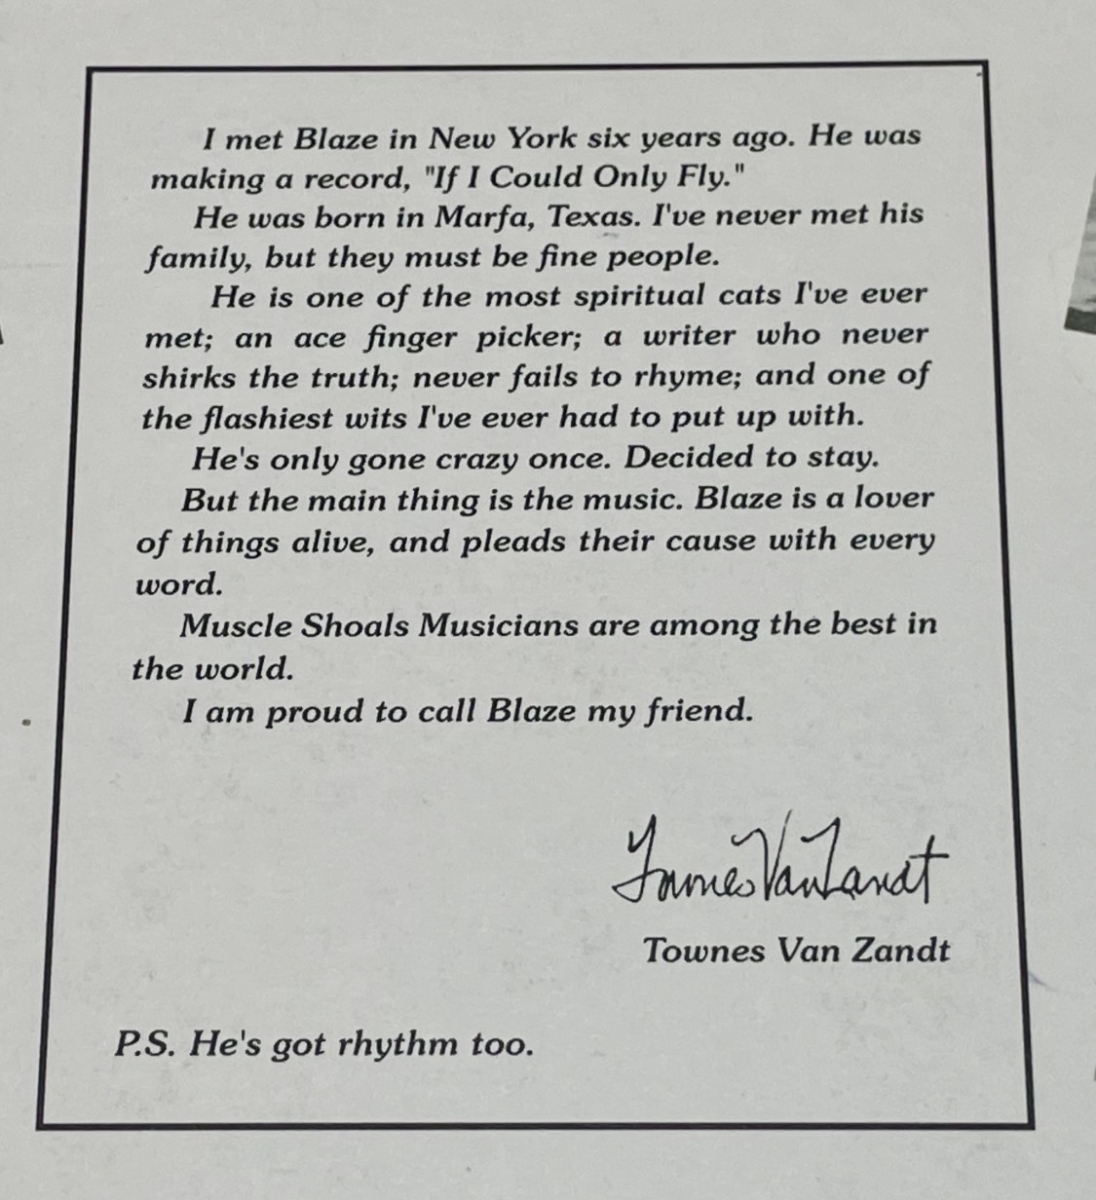 I met Blaze in New York six years ago. He was
making a record, "If I Could Only Fly."
He was born in Marfa, Texas. I've never met his
family, but they must be fine people.
He is one of the most spiritual cats I've ever
met; an ace finger picker; a writer who never
shirks the truth; never fails to rhyme; and one of
the flashiest wits I've ever had to put up with.
He's only gone crazy once. Decided to stay.
But the main thing is the music. Blaze is a lover
of things alive, and pleads their cause with every
word.
Muscle Shoals Musicians are among the best in
the world.
I am proud to call Blaze my friend.
Townes Van Zandt
Townes Van Zandt
P.S. He's got rhythm too.